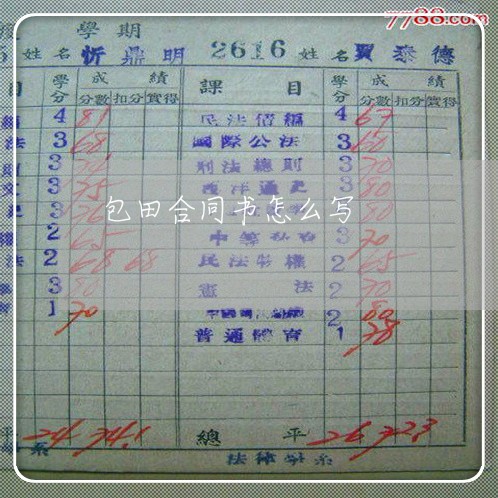 7788.com
學期
5 姓名 忻鼎明 2616 姓名 賈泰德
目 學分 成績 課目 學分 成績
分數 扣分 實得 分數 扣分 實得
4 81 民法債編 4 67
法 3 68 國際公法 3 60
3 刑法總則 3 70
3 75 西洋通史 3 80
包田合同书怎么写
3 80
2 65 3 70
法 2 68 68 民法物權 2 65
3 80 憲法 2 70
1 70 2 80
普通體育 1 78
平 24 74.1 總平 26 72.3
系 法律學系